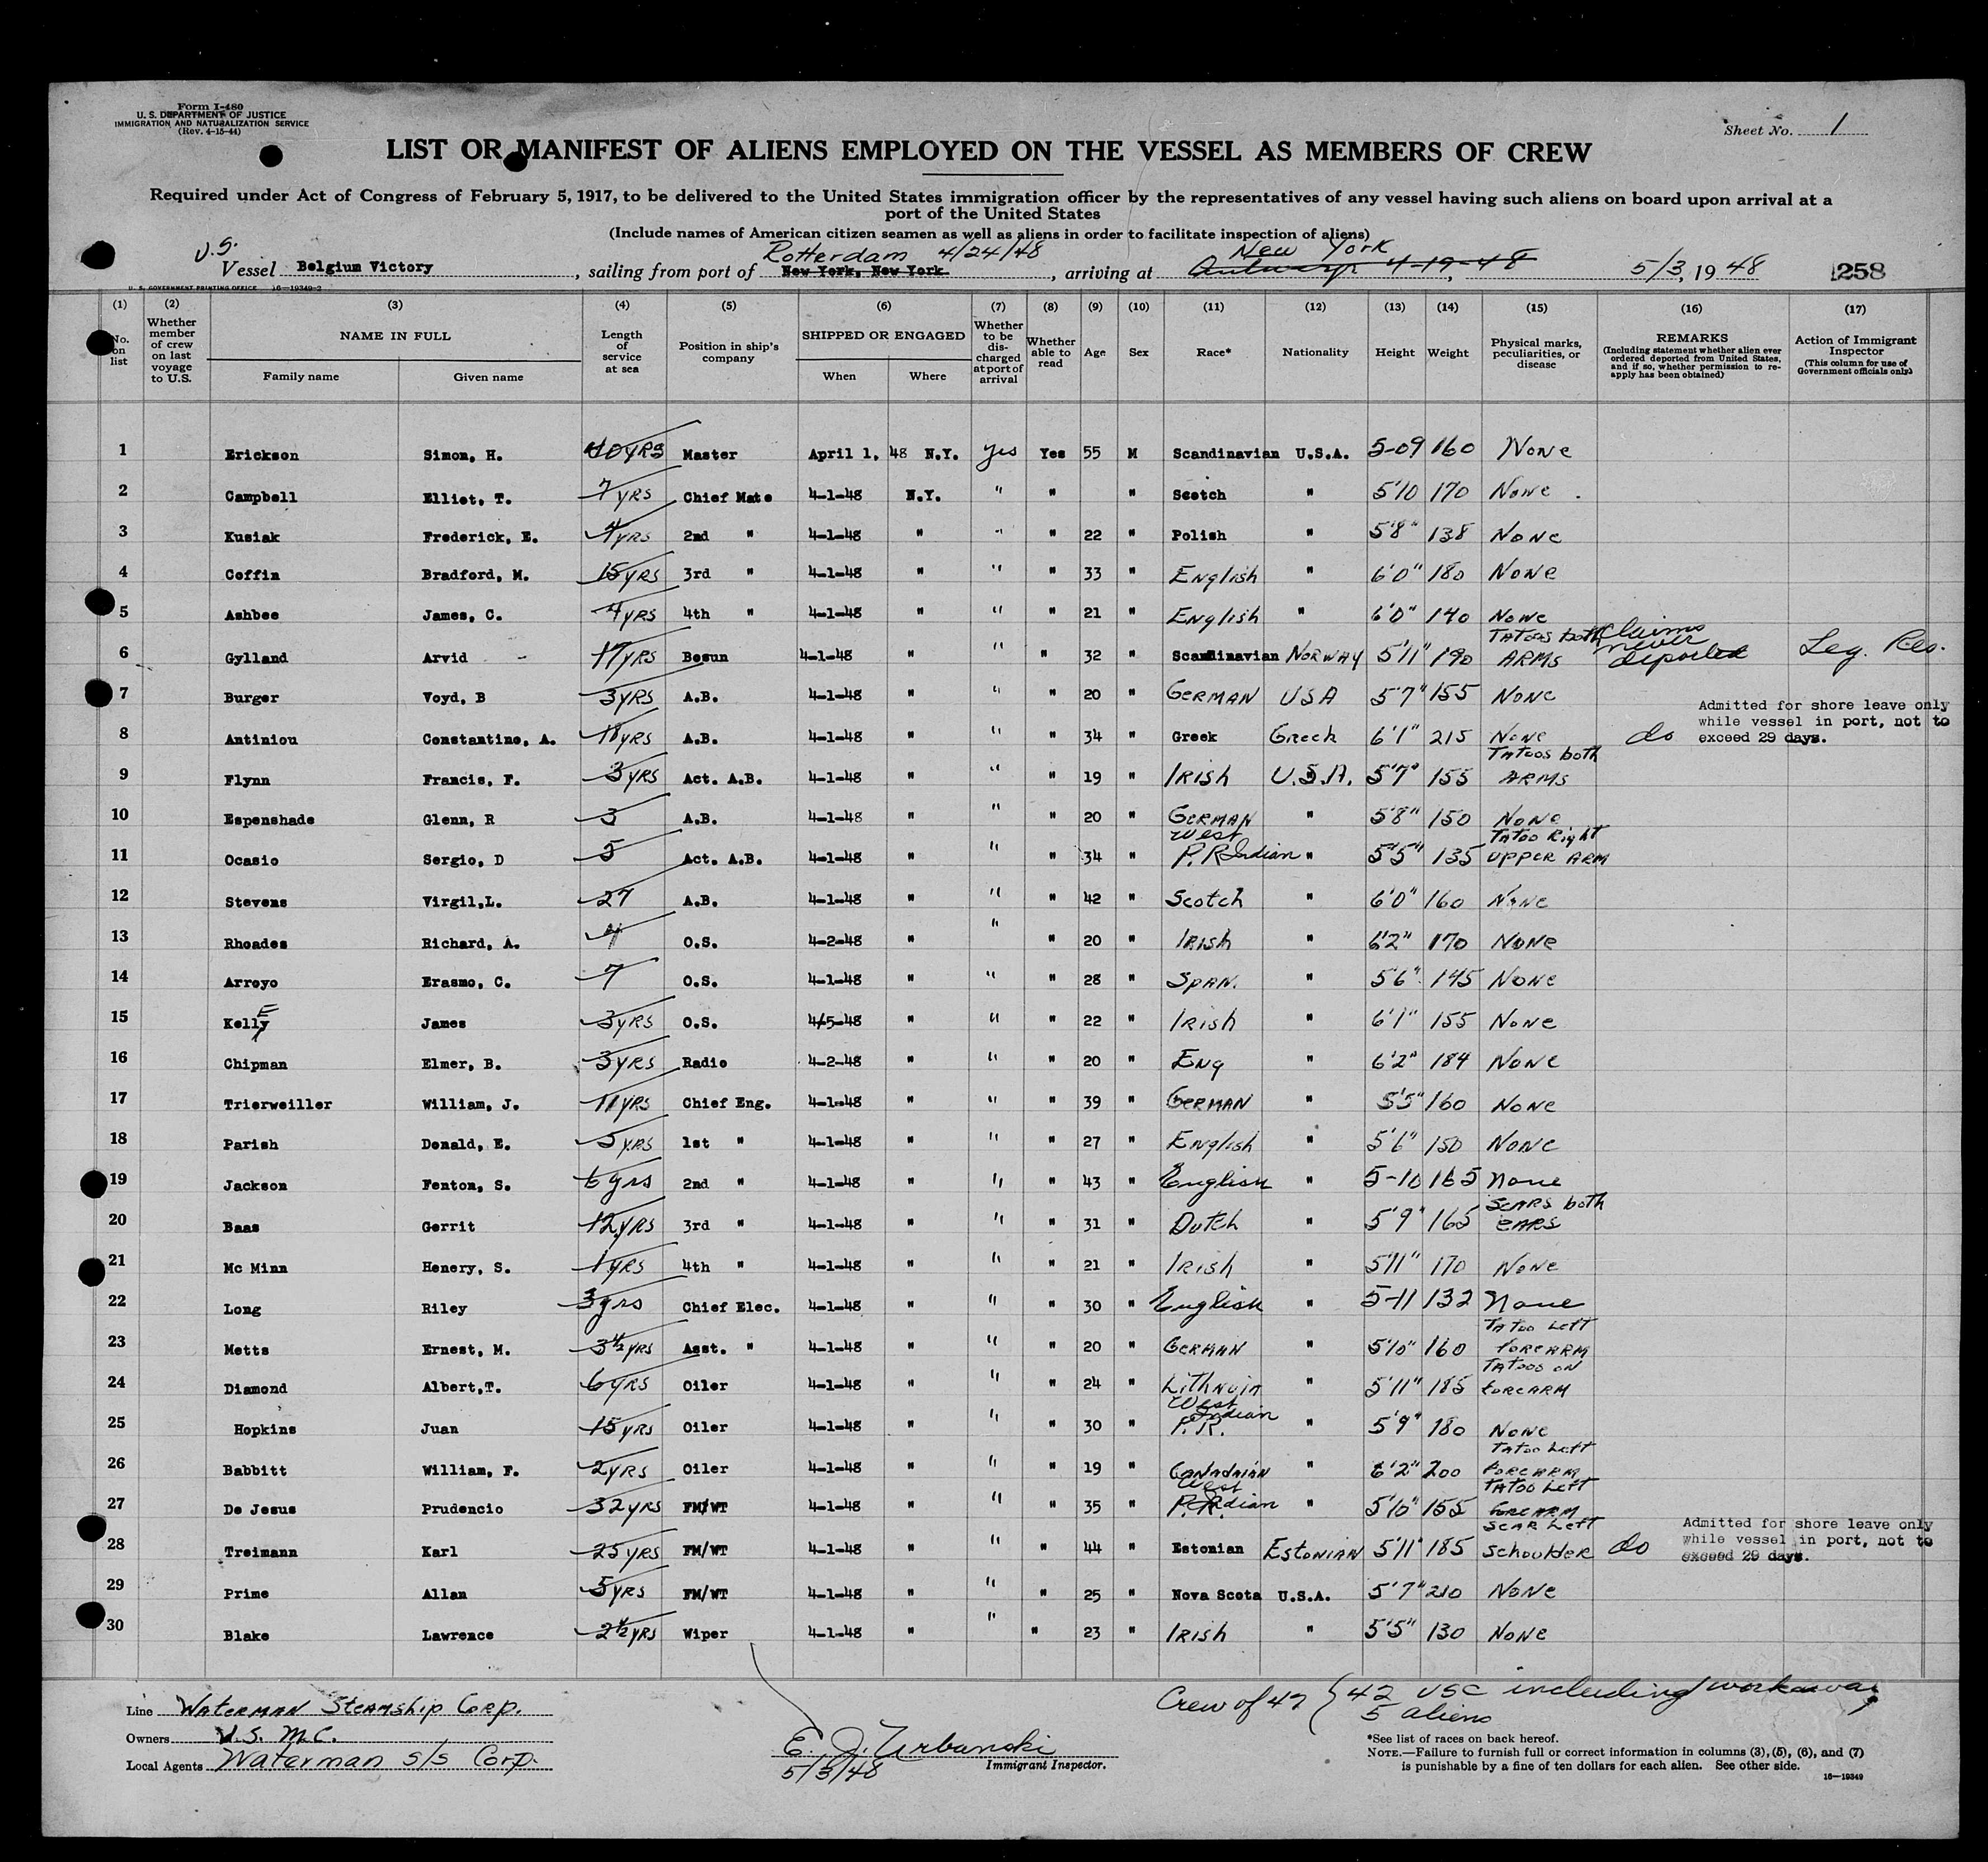 Form I-480
U. S. DEPARTMENT OF JUSTICE
IMMIGRATION AND NATURALIZATION SERVICE
(Rev. 4-15-44)
Sheet No. 1
LIST OR MANIFEST OF ALIENS EMPLOYED ON THE VESSEL AS MEMBERS OF CREW
Required under Act of Congress of February 5, 1917, to be delivered to the United States immigration officer by the representatives of any vessel having such aliens on board upon arrival at a
port of the United States
(Include names of American citizen seamen as well as aliens in order to facilitate inspection of aliens)
U.S. Rotterdam 4/24/48 New York
Vessel Belgium Victory, sailing from port of New York, New York, arriving at Antwerp 4-19-48, 5/3, 19 48 1258
U. S. GOVERNMENT PRINTING OFFICE 16—19349-2
(1) (2) (3) (4) (5) (6) (7) (8) (9) (10) (11) (12) (13) (14) (15) (16) (17)
No. on list
Whether member of crew on last voyage to U.S.
NAME IN FULL
Family name Given name
Length of service at sea
Position in ship's company
SHIPPED OR ENGAGED
When Where
Whether to be discharged at port of arrival
Whether able to read
Age
Sex
Race*
Nationality
Height
Weight
Physical marks, peculiarities, or disease
REMARKS
(Including statement whether alien ever ordered deported from United States, and if so, whether permission to reapply has been obtained)
Action of Immigrant Inspector
(This column for use of Government officials only)
1 Erickson Simon, H. 40 YRS Master April 1, 48 N.Y. Yes Yes 55 M Scandinavian U.S.A. 5-09 160 None
2 Campbell Elliot, T. 7 YRS Chief Mate 4-1-48 N.Y. " " " Scotch " 5'10 170 None
3 Kusiak Frederick, E. 4 YRS 2nd " 4-1-48 " " " 22 " Polish " 5'8" 138 None
4 Coffin Bradford, M. 15 YRS 3rd " 4-1-48 " " " 33 " English " 6'0" 180 None
5 Ashbee James, C. 4 YRS 4th " 4-1-48 " " " 21 " English " 6'0" 140 None
6 Gylland Arvid - 17 YRS Bosun 4-1-48 " " " 32 " Scandinavian NORWAY 5'11" 190 TATOOS both ARMS Claims never deported Leg. Res.
7 Burger Voyd, B 3 YRS A.B. 4-1-48 " " " 20 " GERMAN USA 5'7" 155 None
8 Antiniou Constantine, A. 18 YRS A.B. 4-1-48 " " " 34 " Greek Greek 6'1" 215 None do Admitted for shore leave only while vessel in port, not to exceed 29 days.
9 Flynn Francis, F. 3 YRS Act. A.B. 4-1-48 " " " 19 " IRISH U.S.A. 5'7" 155 TATOOS both ARMS
10 Espenshade Glenn, R 3 A.B. 4-1-48 " " " 20 " GERMAN " 5'8" 150 None
11 Ocasio Sergio, D 5 Act. A.B. 4-1-48 " " " 34 " P.R. West Indian " 5'5" 135 TATOO Right UPPER ARM
12 Stevens Virgil,L. 27 A.B. 4-1-48 " " " 42 " Scotch " 6'0" 160 None
13 Rhoades Richard, A. 4 O.S. 4-2-48 " " " 20 " IRISH " 6'2" 170 None
14 Arroyo Erasmo, C. 7 O.S. 4-1-48 " " " 28 " SPAN. " 5'6" 145 None
15 Kelly James 3 YRS O.S. 4/5-48 " " " 22 " IRISH " 6'1" 155 None
16 Chipman Elmer, B. 3 YRS Radio 4-2-48 " " " 20 " ENG " 6'2" 184 None
17 Trierweiller William, J. 11 YRS Chief Eng. 4-1-48 " " " 39 " GERMAN " 5'5" 160 None
18 Parish Donald, E. 5 YRS 1st " 4-1-48 " " " 27 " English " 5'6" 150 None
19 Jackson Fenton, S. 6 yrs 2nd " 4-1-48 " " " 43 " English " 5-10 165 None
20 Baas Gerrit 12 YRS 3rd " 4-1-48 " " " 31 " Dutch " 5'9" 165 SCARS both EARS
21 Mc Minn Henery, S. 1 YRS 4th " 4-1-48 " " " 21 " IRISH " 5'11" 170 None
22 Long Riley 3 yrs Chief Elec. 4-1-48 " " " 30 " English " 5-11 132 None
23 Metts Ernest, M. 3 1/2 YRS Asst. " 4-1-48 " " " 20 " GERMAN " 5'10" 160 TATOO LEFT FOREARM
24 Diamond Albert,T. 6 YRS Oiler 4-1-48 " " " 24 " " 5'11" 185 TATOOS ON FOREARM
25 Hopkins Juan 15 YRS Oiler 4-1-48 " " " 30 " West Indian P.R. " 5'9" 180 None
26 Babbitt William, F. 2 YRS Oiler 4-1-48 " " " 19 " CANADAIAN " 6'2" 200 TATOO LEFT FOREARM
27 De Jesus Prudencio 32 YRS FM/WT 4-1-48 " " " 35 " West Indian P.R. " 5'10" 155 TATOO LEFT FOREARM
28 Treimann Karl 25 YRS FM/WT 4-1-48 " " " 44 " Estonian ESTONIAN 5'11" 185 SCAR LEFT SchoulDER do Admitted for shore leave only while vessel in port, not to exceed 29 days.
29 Prime Allan 5 YRS FM/WT 4-1-48 " " " 25 " Nova Scota U.S.A. 5'7" 210 None
30 Blake Lawrence 2 1/2 YRS Wiper 4-1-48 " " " 23 " IRISH " 5'5" 130 None
Line WATERMAN STEAMSHIP CORP.
Owners U.S. M.C.
Local Agents Waterman S/S Corp.
E. J. Urbanski
5/3/48 Immigrant Inspector.
Crew of 47 { 42 USC including workaway
5 aliens
*See list of races on back hereof.
NOTE.—Failure to furnish full or correct information in columns (3), (5), (6), and (7)
is punishable by a fine of ten dollars for each alien. See other side.
16—19349